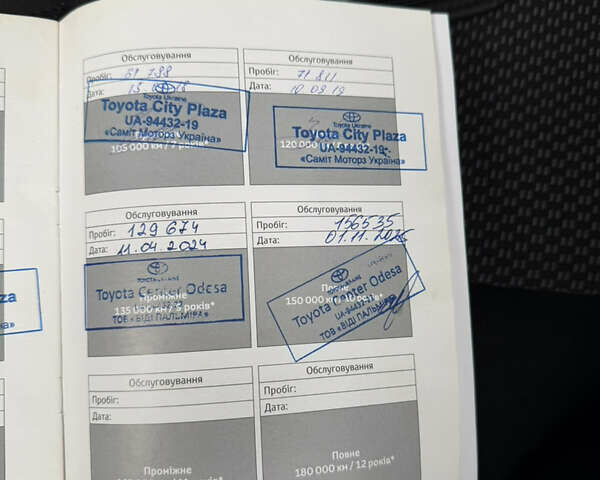 Обслуговування
Пробіг: 61 798
Дата:
Toyota Ukraine
Toyota City Plaza
UA-94432-19
«Саміт Моторз Україна»
105 000 км / 7 років*
Обслуговування
Пробіг: 71 811
Дата: 10.09.19
Toyota Ukraine
Toyota City Plaza
UA-94432-19
«Саміт Моторз Україна»
120 000
Обслуговування
Пробіг: 129 674
Дата: 11.04.2024
Toyota Center Odesa
Проміжне
135 000 км / 9 років*
ТОВ «ВІДІ ПАЛЬМІРА»
Обслуговування
Пробіг: 156535
Дата: 01.11.2025
Повне
Toyota Center Odesa
150 000 км
UA-94432-
ТОВ «ВІДІ ПАЛЬМІРА»
Обслуговування
Пробіг:
Дата:
Проміжне
Обслуговування
Пробіг:
Дата:
Повне
180 000 км / 12 років*